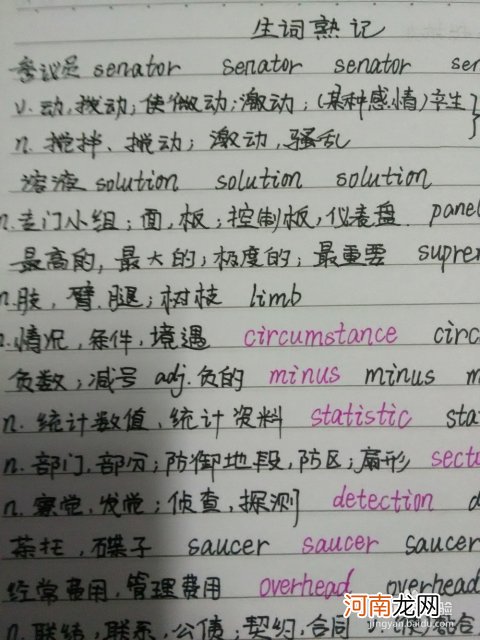 生词熟记
参议员 senator senator senator
v. 动,拨动;使微动;激动;(某种感情)产生
n. 搅拌、搅动;激动,骚乱
溶液 solution solution solution
n.专门小组;面,板;控制板,仪表盘 panel
最高的,最大的;极度的;最重要
n.肢,臂,腿;树枝 limb
n.情况,条件,境遇 circumstance circ
负数;减号 adj.负的 minus minus m
n.统计数值,统计资料 statistic sta
n.部门,部分;防御地段,防区;扇形 secto
n.察觉,发觉;侦查,探测 detection d
茶托,碟子 saucer saucer saucer
经常费用,管理费用 overhead overhead
n.联结,联系;公债;契约,合同
河南龙网
jingyan.baidu.com